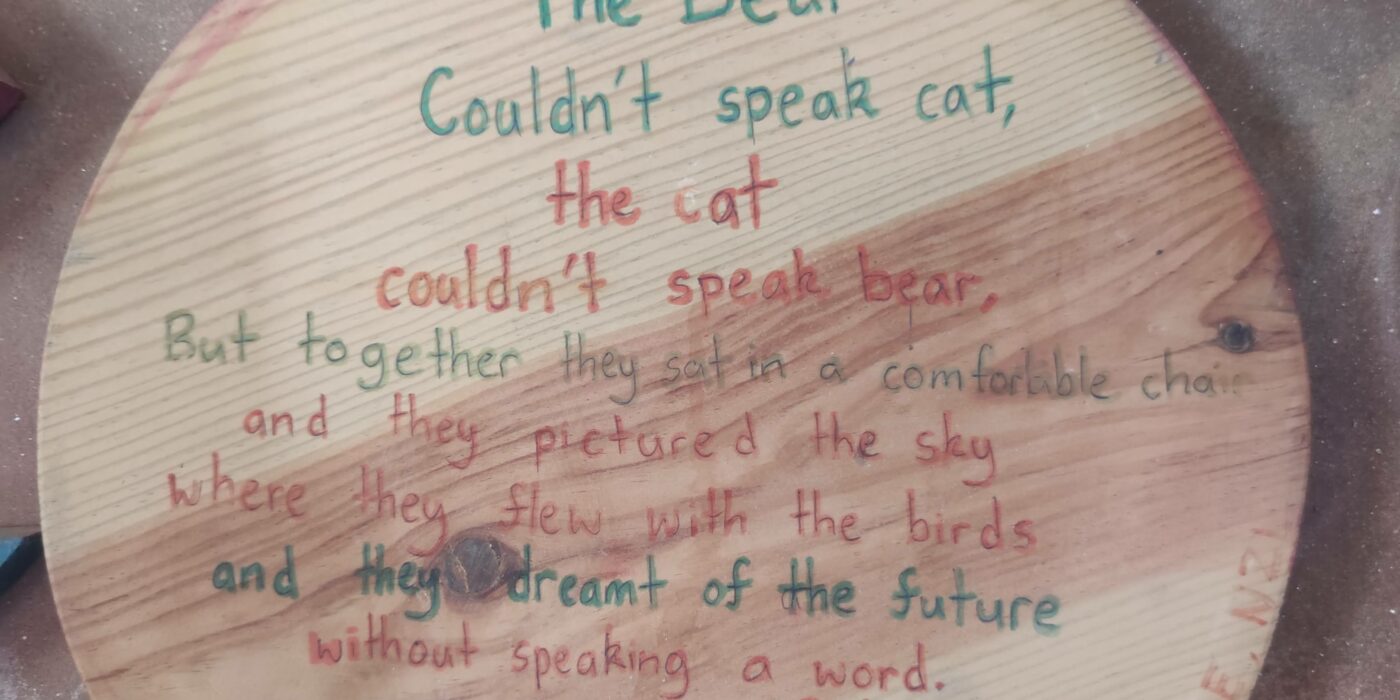 The Bear
Couldn't speak cat,
the cat
couldn't speak bear,
But together they sat in a comfortable chair
and they pictured the sky
where they flew with the birds
and they dreamt of the future
without speaking a word.